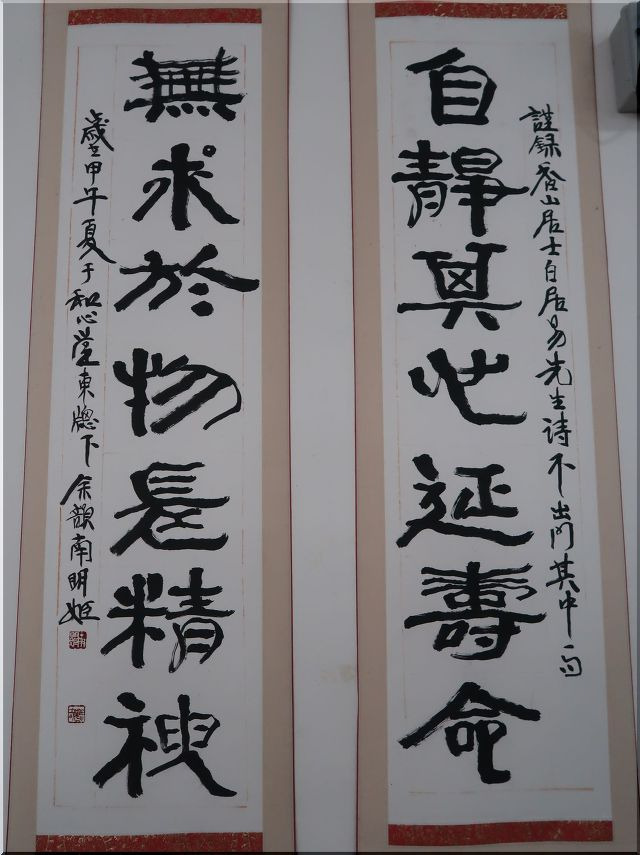 謹録香山居士白居易先生诗不出門其中一句
自靜其心延壽命
無求於物長精神
歲甲午夏于和心堂東牕下余韻南明姬